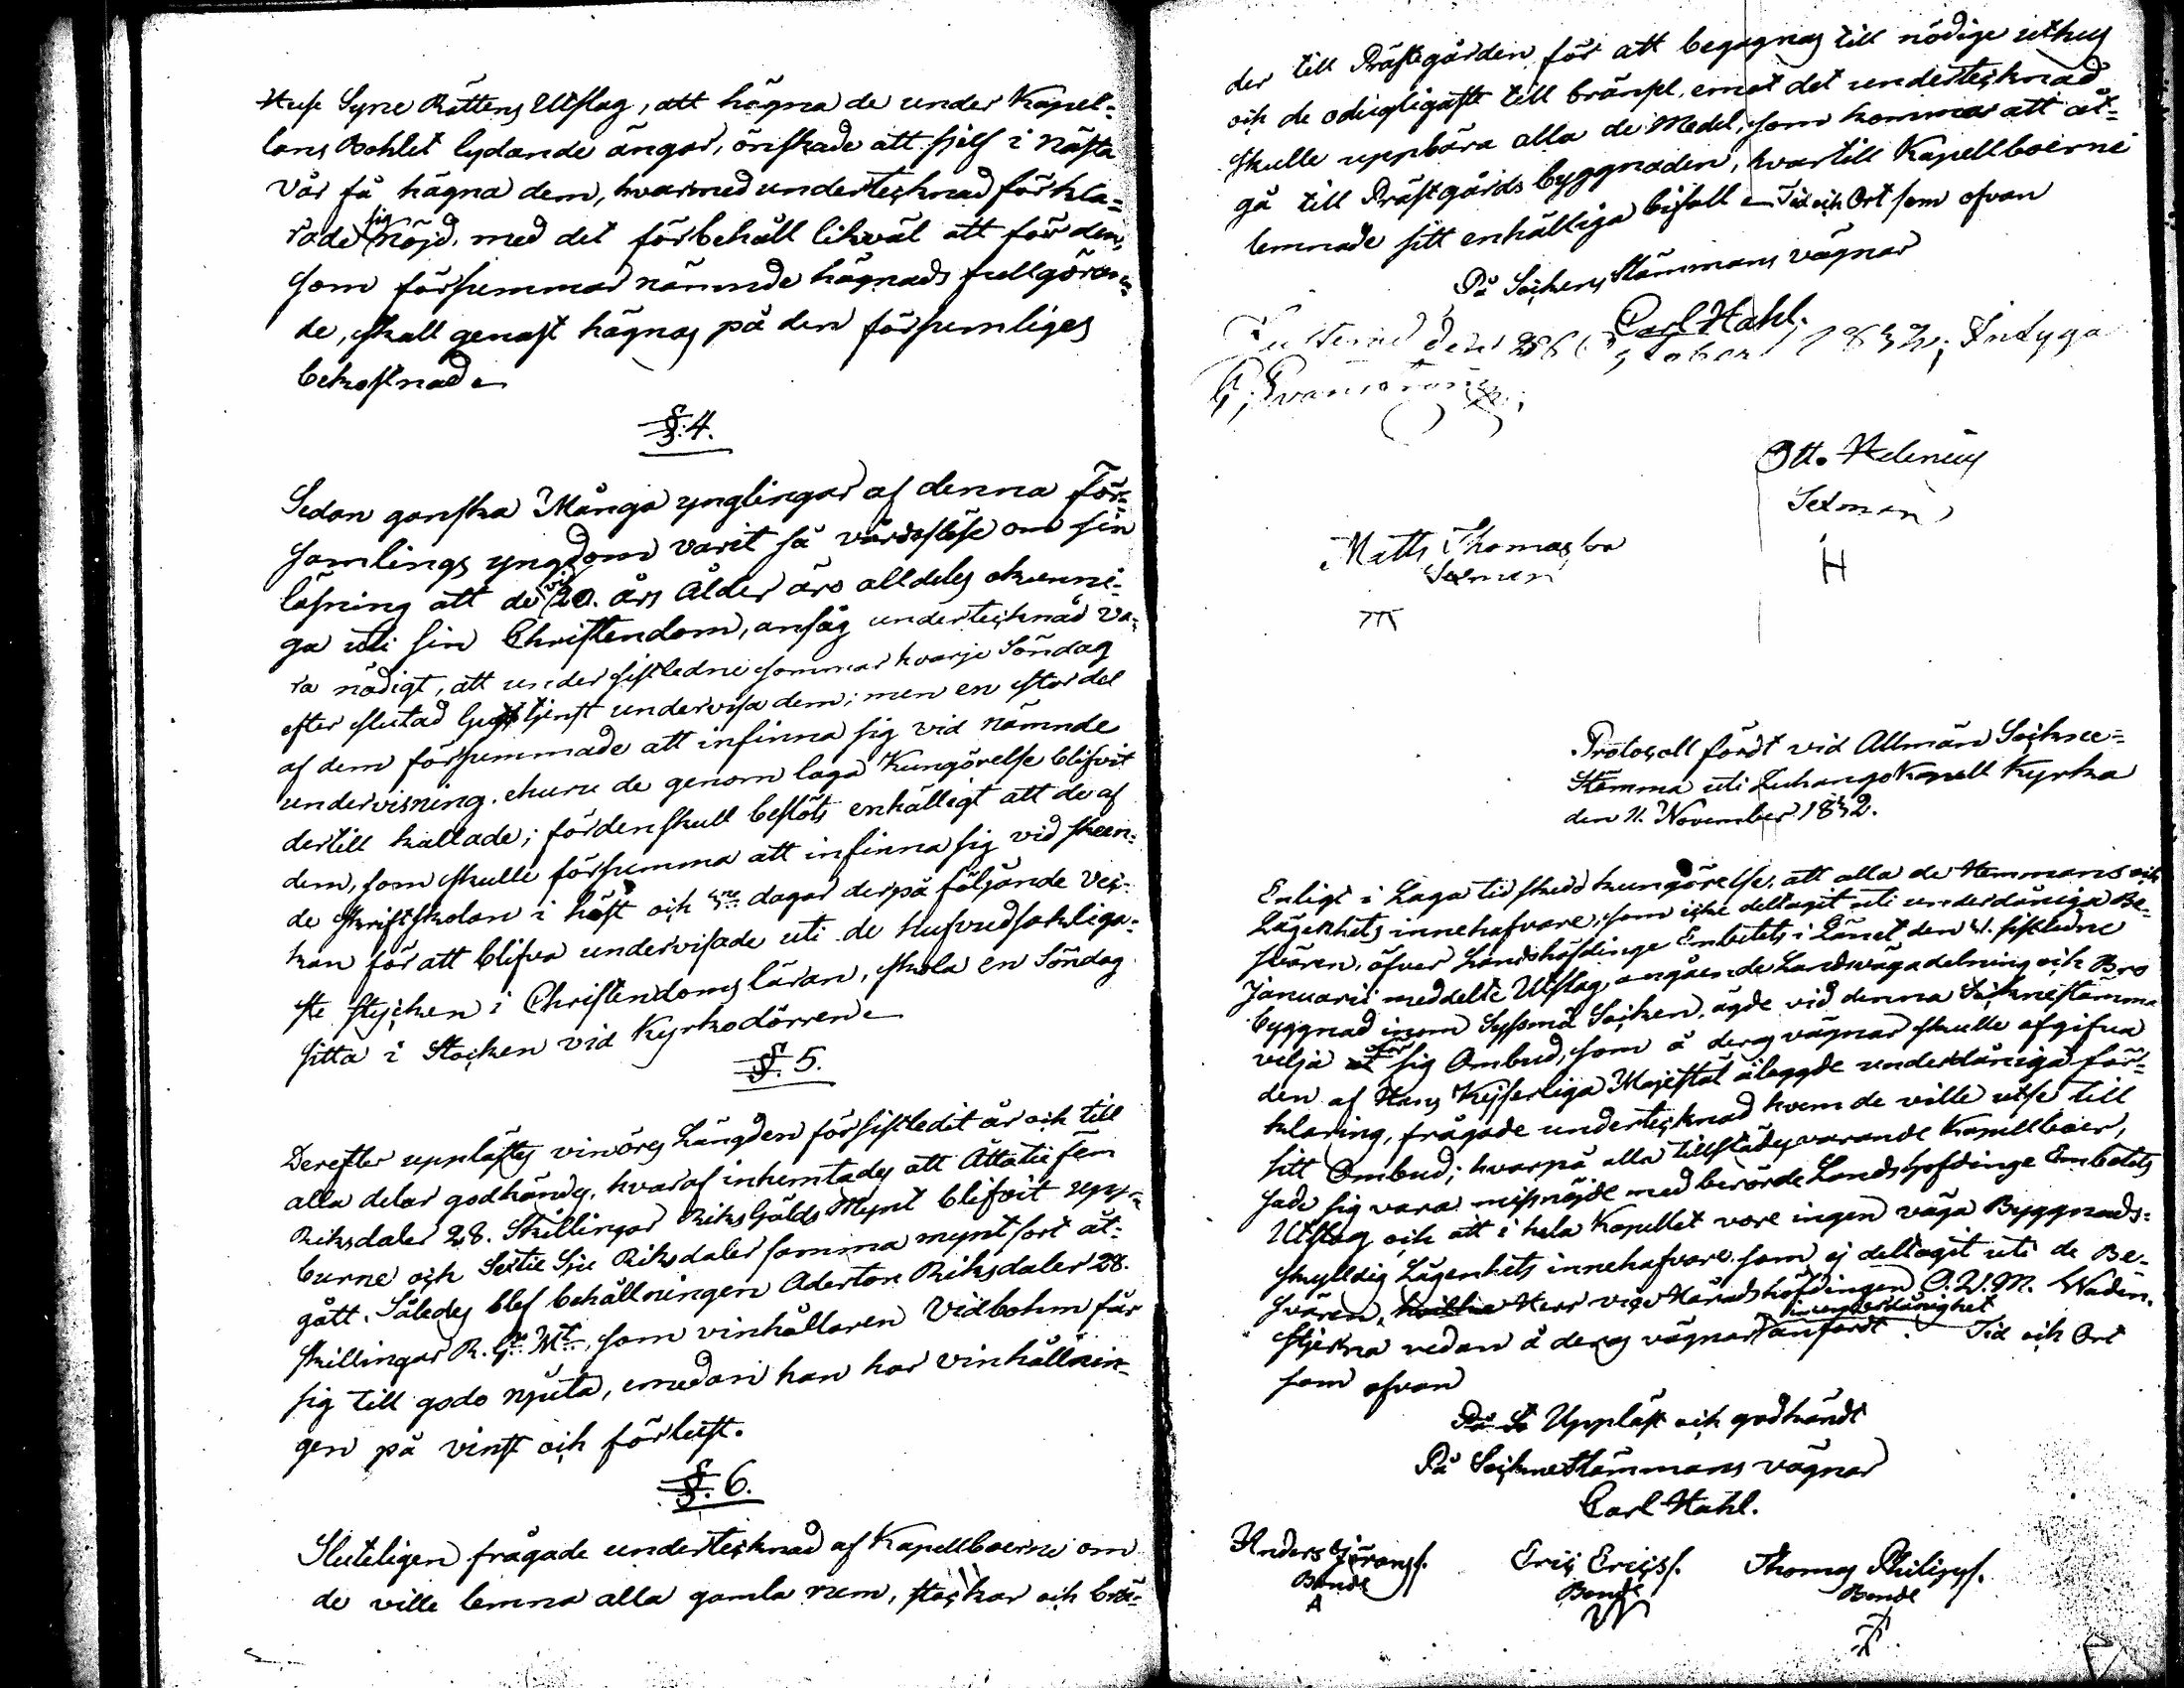 Huse Syne Rättens Utslag, att hägna de under Kapel-
lans Bohlet lydande ängar, önskade att sjelf i nästa
vår få hägna dem, hvarmed undertecknad förkla-
rade sig nöjd, med det förbehåll likväl att för den,
som försummar nämnde hägnads fullgöran-
de, skall genast hägnas på den försumliges
bekostnad
§. 4.
Sedan ganska Många ynglingar af denna För-
samlings ungdom varit så vårdslöse om sin
läsning att de vid 20. års Ålder äro alldeles okunni-
ga uti sin Christendom, ansåg undertecknad va-
ra nödigt, att under sistledne sommar hvarje Söndag
efter slutad Gudstjenst undervisa dem; men en stor del
af dem försummade att infinna sig vid nämnde
undervisning, ehuru de genom laga Kungörelse blifvit
dertill kallade; fördenskull beslöts enhälligt att de af
dem, som skulle försumma att infinna sig vid skeen-
de skriftskolan i höst och dagar derpå följande vec-
kan för att blifva undervisade uti de Hufvudsakliga-
ste stycken i Christendoms läran, skola en Söndag
sitta i Stocken vid Kyrkodörren
§. 5.
Derefter upplästes vinöres Längden för sistledit år och till
alla delar godkändes, hvaraf inhemtades att Åttatie fem
Riksdaler 28. Skillingar Riks Gälds Mynt blifvit upp-
burne och Sextie Sju Riksdaler samma myntsort åt-
gått. Således blef behållningen Aderton Riksdaler 28.
skillingar R. Gs. Mt. som vinhållaren Vidbohm får
sig till godo njuta, emedan han har vinhållnin-
gen på vinst och förlust.
§. 6.
Sluteligen frågade undertecknad af Kapellboerne om
de ville lemna alla gamla rum, stockar och brä-
der till Prästgården för att begagnas till nödige uthus
och de odugligaste till bränsl, emot det undertecknad
skulle uppbära alla de Medel, som komma att åt-
gå till Prästgårds byggnaden, hvartill Kapellboerne
lemnade sitt enhälliga bifall Tid och Ort som ofvan
På Sockens Stämmans vägnar
Carl Hahl.
den 28 October 1832, Intyga
Otto Helenius
Sexman
H
Matts Thomasson
Sexman
Protocoll fördt vid Allmän Sockne-
Stämma uti Luhango Kapell Kyrka
den 11. November 1832.
Enligt i Laga tid skedd kungörelse, att alla de Hemmans och
Lägenhets innehafvare, som icke deltagit uti underdåniga Be-
svären, öfver Landshöfdinge Embetets i Länet den 21. sistledne
Januarii meddelte Utslag, angående Landsvägadelning och Bro
byggnad inom Sysmä Socken, ägde vid denna Socknestämma
vilja för sig Ombud, som å deras vägnar skulle afgifva
den af Hans Kejserliga Majestät ålaggde underdåniga för-
klaring, frågade undertecknad hvem de ville utse till
sitt Ombud; hvarpå alla tillstädesvarande Kapellboer,
sade sig vara missnöjde med berörde Landshöfdinge Embetets
Utslag och att i hela Kapellet vore ingen väga Byggnads-
skylldig Lägenhets innehafvare som ej deltagit uti de Be-
svären, Herr vice Häradshöfdingen Wadén-
stjerna redan å deras vägnar i underdånighet anfördt. Tid och Ort
som ofvan
Uppläst och godkändt
På Sockne Stämmans vägnar
Carl Hahl.
Anders Göranss.
Bonde
A
Eric Ericss.
Bonde
Thomas Philipss.
Bonde